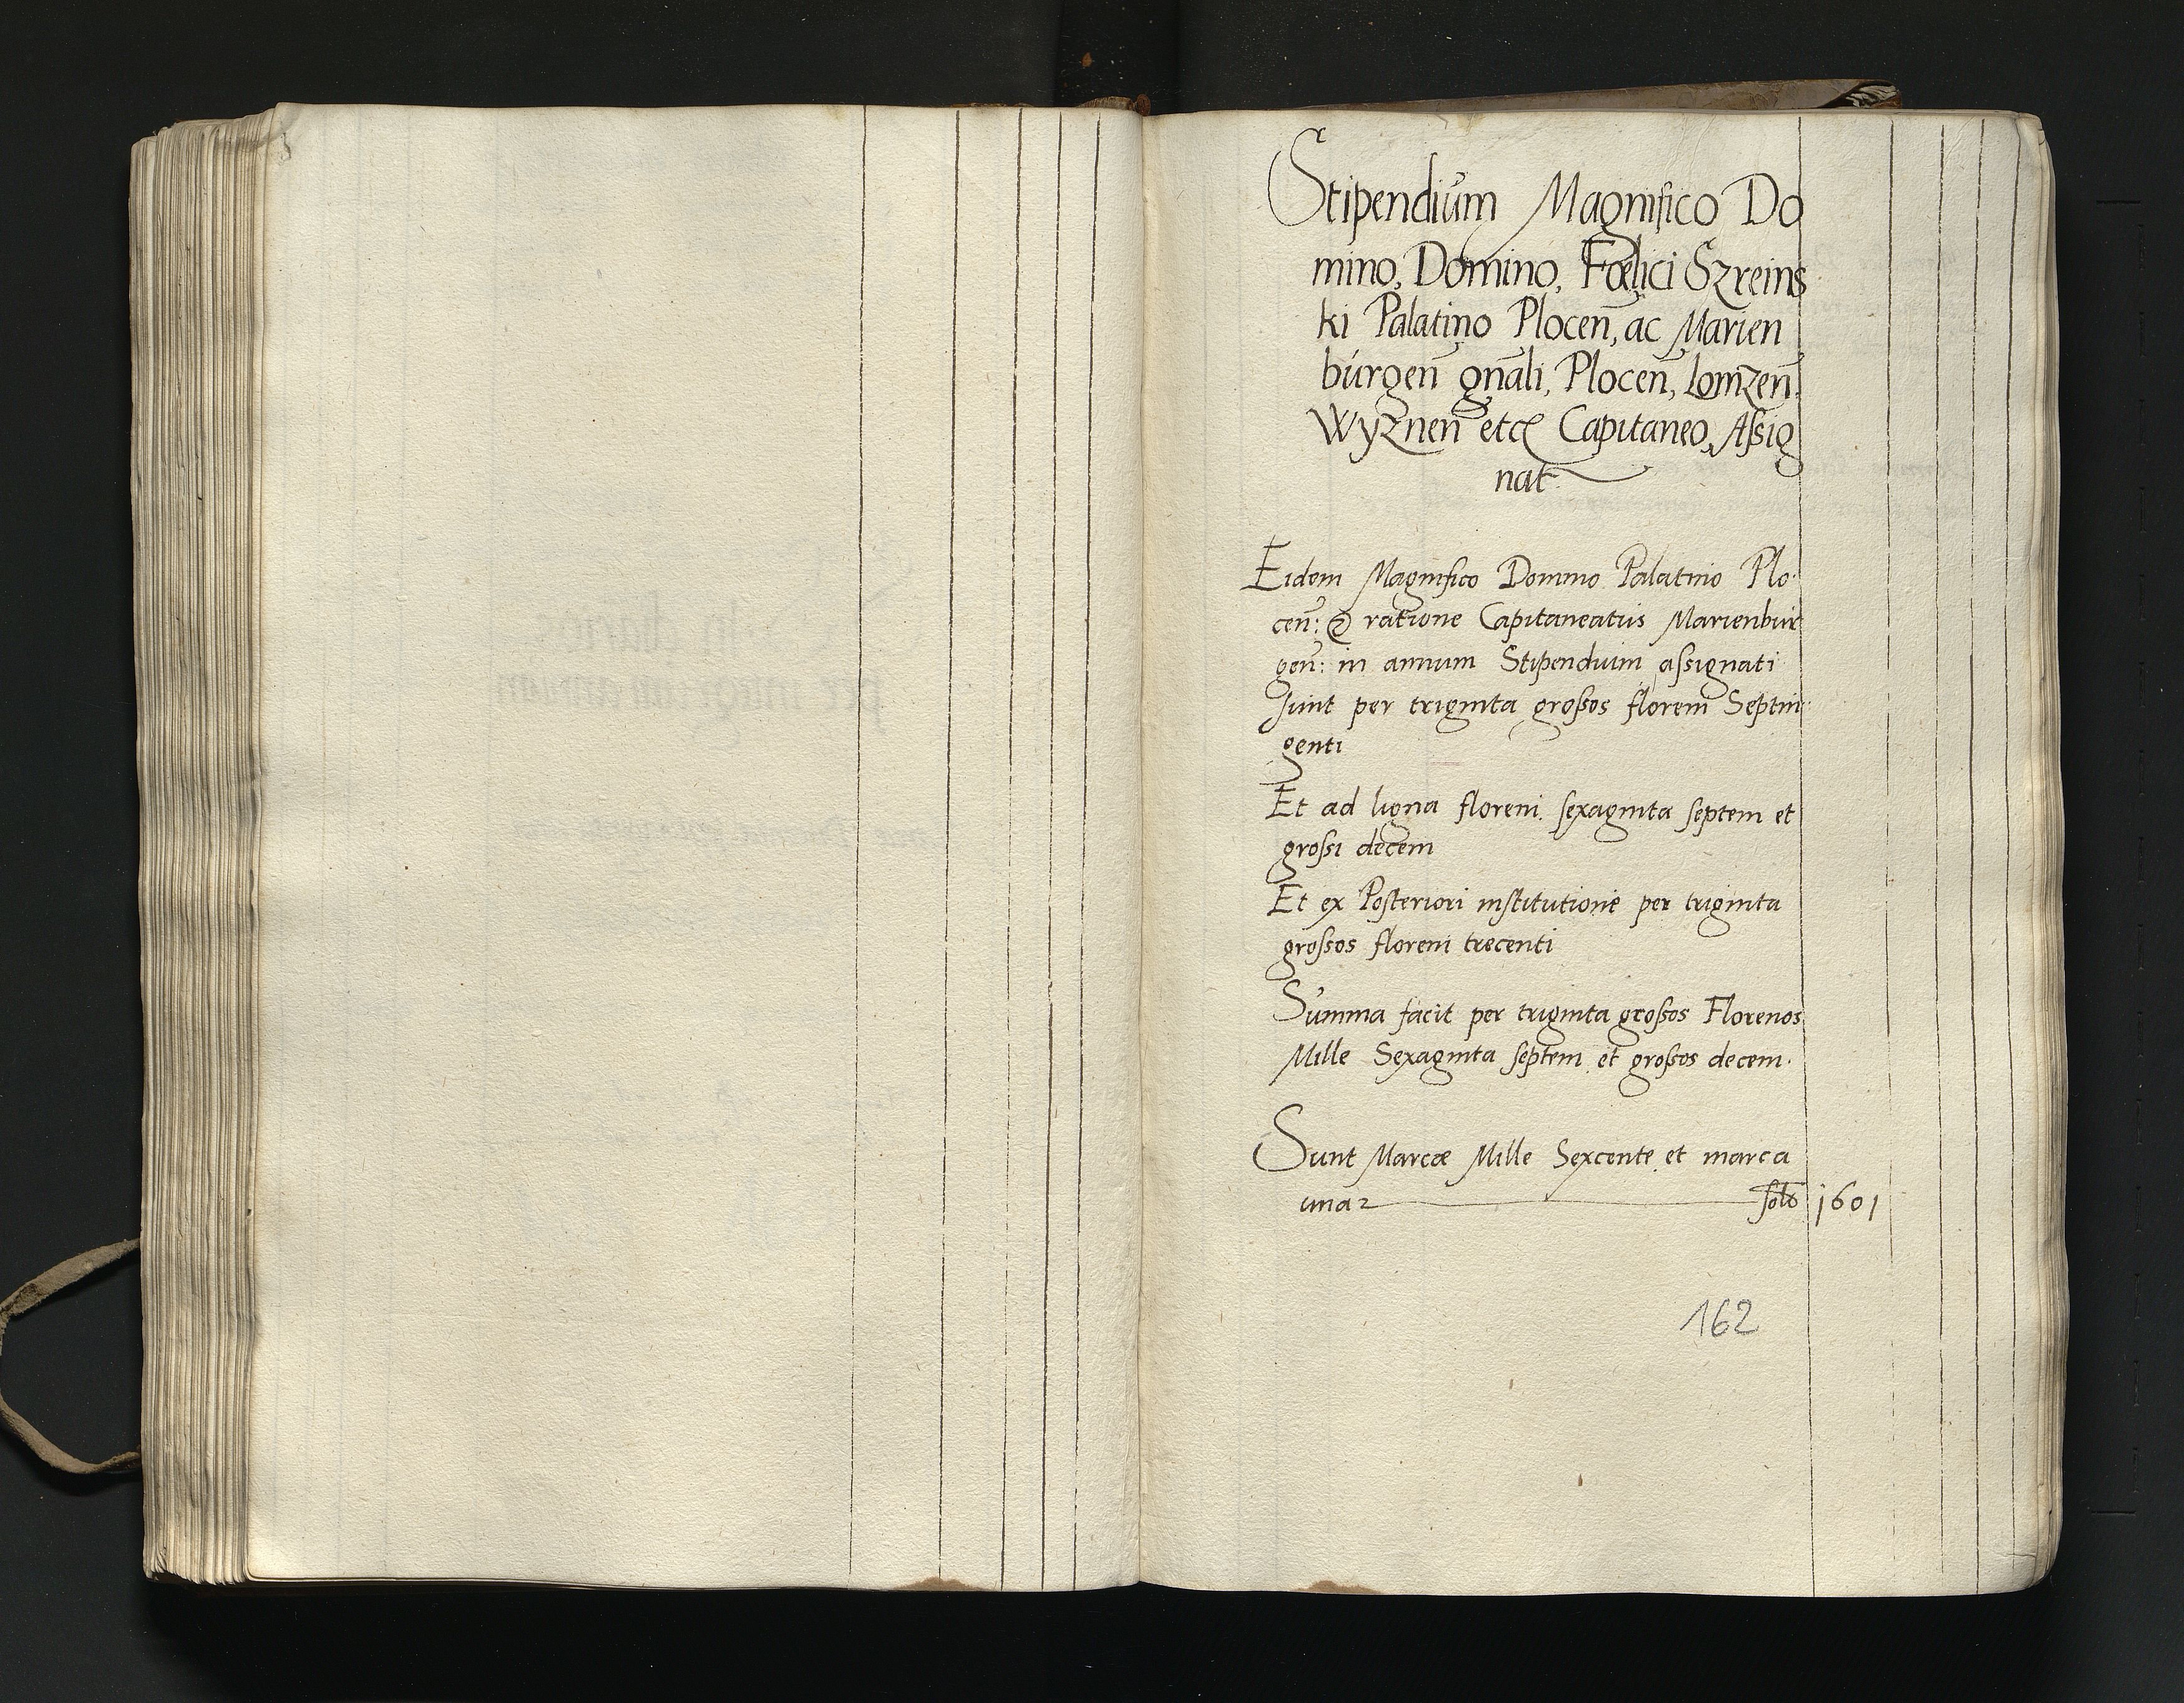 Stipendium Magnifico Do
mino, Domino, Fœlici Szreins
ki Palatino Plocen̄, ac Marien
burgen̄ gn̄ali, Plocen̄, Lomzen̄.
Wyznen̄ etc Capitaneo, Aſsig
nat
Eidem Magnifico Domino Palatino Plo
cen̄: ratione Capitaneatus Marienbur
gen̄: in annum Stipendium aſsignati
sunt per triginta groſsos floreni Septin
genti
Et ad ligna floreni ſexaginta ſeptem et
groſsi decem
Et ex Poſteriori inſtitutione per triginta
groſsos floreni trecenti
Summa facit per triginta groſsos Florenos
Mille Sexaginta ſeptem et groſsos decem.
Sunt Marcæ Mille Sexcente et marca
una ſolt 1601
162